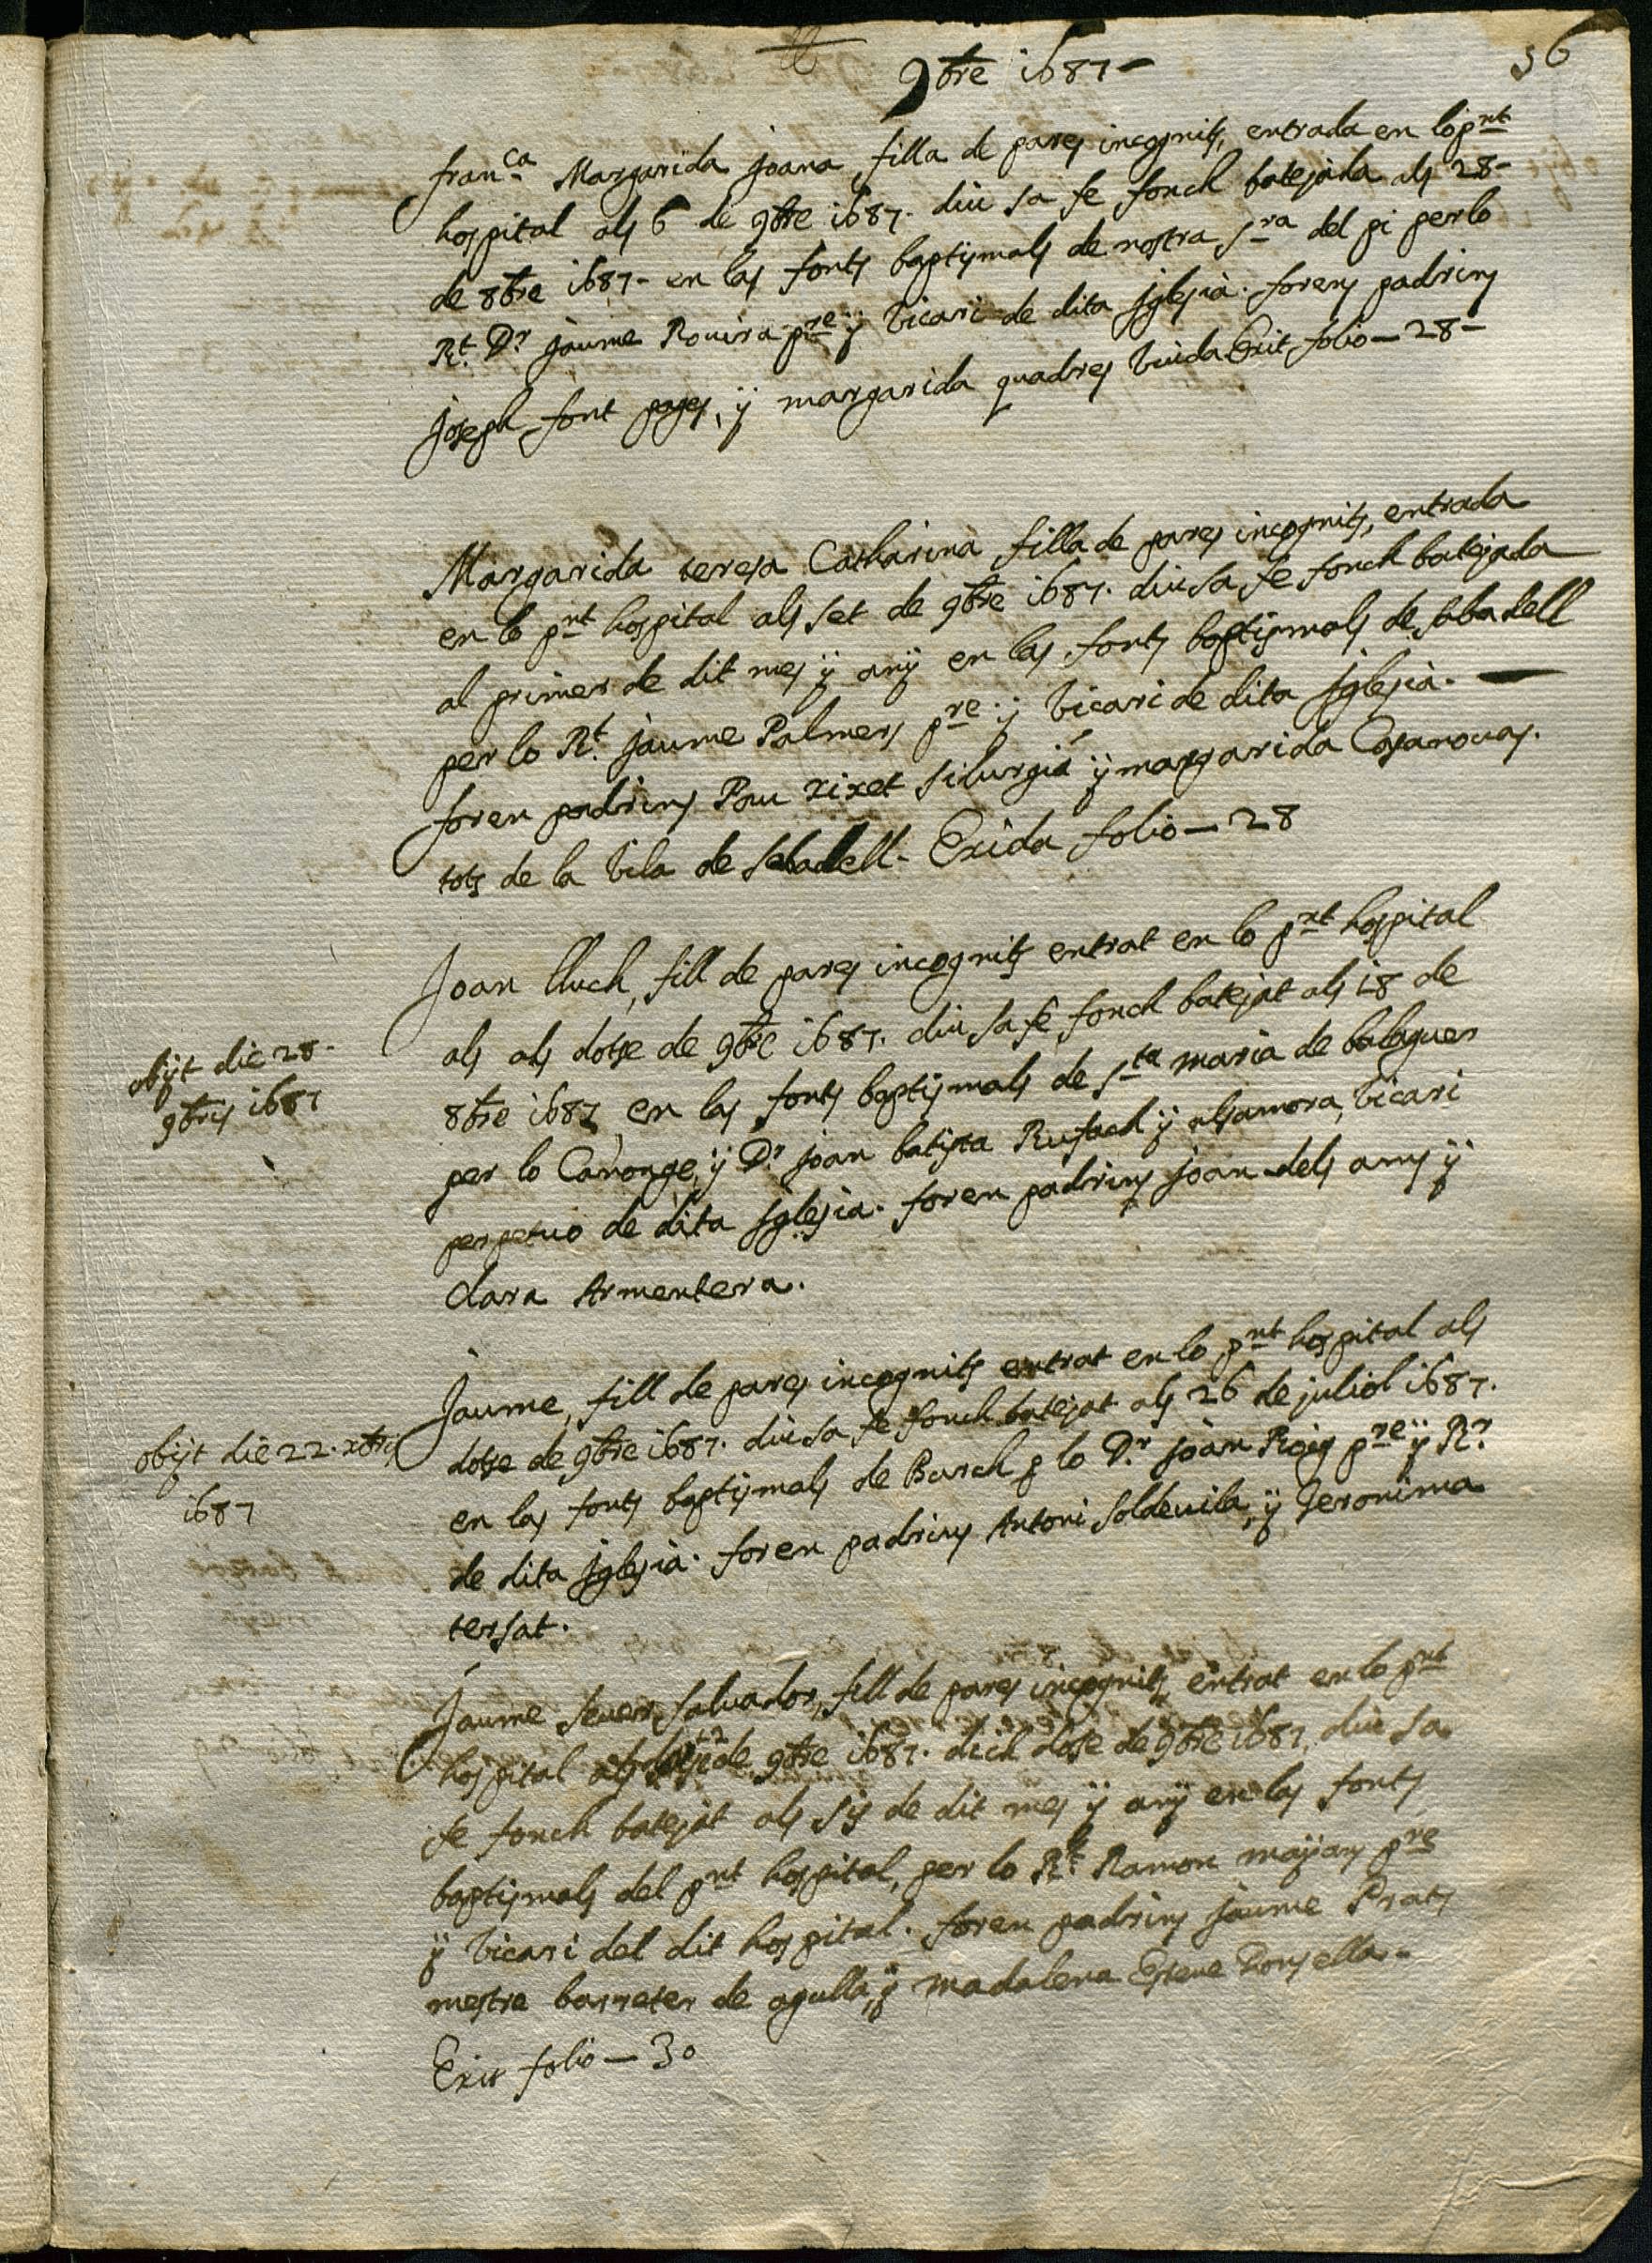 9bre 1687-
56
fran.ca Margarida Joana filla de pares incognits, entrada en lo pnt
hospital als 6 de 9bre 1687. diu sa fe fonch batejada als 28-
de 8bre 1687- en las fonts baptismals de nostra Sra del pi perlo
Rt. Dr Jaume Rovira pre ÿ Vicari de dita Iglesia. forens padrins
Joseph font pages, ÿ margarida quadres Viuda Exit folio - 28-
Margarida teresa Catharina filla de pares incognits, entrada
en lo pnt hospital als set de 9bre 1687. diu sa fe fonch batejada
al primer de dit mes ÿ anÿ en las fonts baptismals de Sabadell
per lo Rt. Jaume Palmers pre. ÿ Vicari de dita Iglesia.
foren padrins Pau xixet silurgià ÿ margarida Casanovas.
tots de la Vila de Sabadell. Exida folio - 28
Joan lluch, fill de pares incognits entrat en lo pnt hospital
als als dotse de 9bre 1687. diu sa fe fonch batejat als 18 de
8bre 1687 en las fonts baptismals de Sta maria de balaguer
per lo Canonge, ÿ Dr Joan batista Rufach ÿ alsamora, Vicari
perpetuo de dita Iglesia. foren padrins Joan dels ams ÿ
Clara Armentera.
obijt die 28-
9bris 1687
Jaume, fill de pares incognits entrat en lo pnt hospital als
dotse de 9bre 1687. diu sa fe fonch batejat als 26 de juliol 1687.
en las fonts baptismals de Bursch p lo Dr Joan Roig pre ÿ Rr.
de dita Iglesia. foren padrins Antoni Soldevila, ÿ Jeronima
tersat.
obijt die 22. xbris
1687
Jaume Sever Salvador, fill de pares incognits, entrat en lo pnt
hospital als 12 de 9bre 1687. dich dotse de 9bre 1687, diu sa
fe fonch batejat als sis de dit mes ÿ anÿ en las fonts
baptismals del pnt hospital, per lo Rt. Ramon maÿans pre
ÿ Vicari del dit hospital. foren padrins Jaume Prats
mestre barreter de agulla, ÿ madalena Esteve Donsella.-
Exit folio - 30